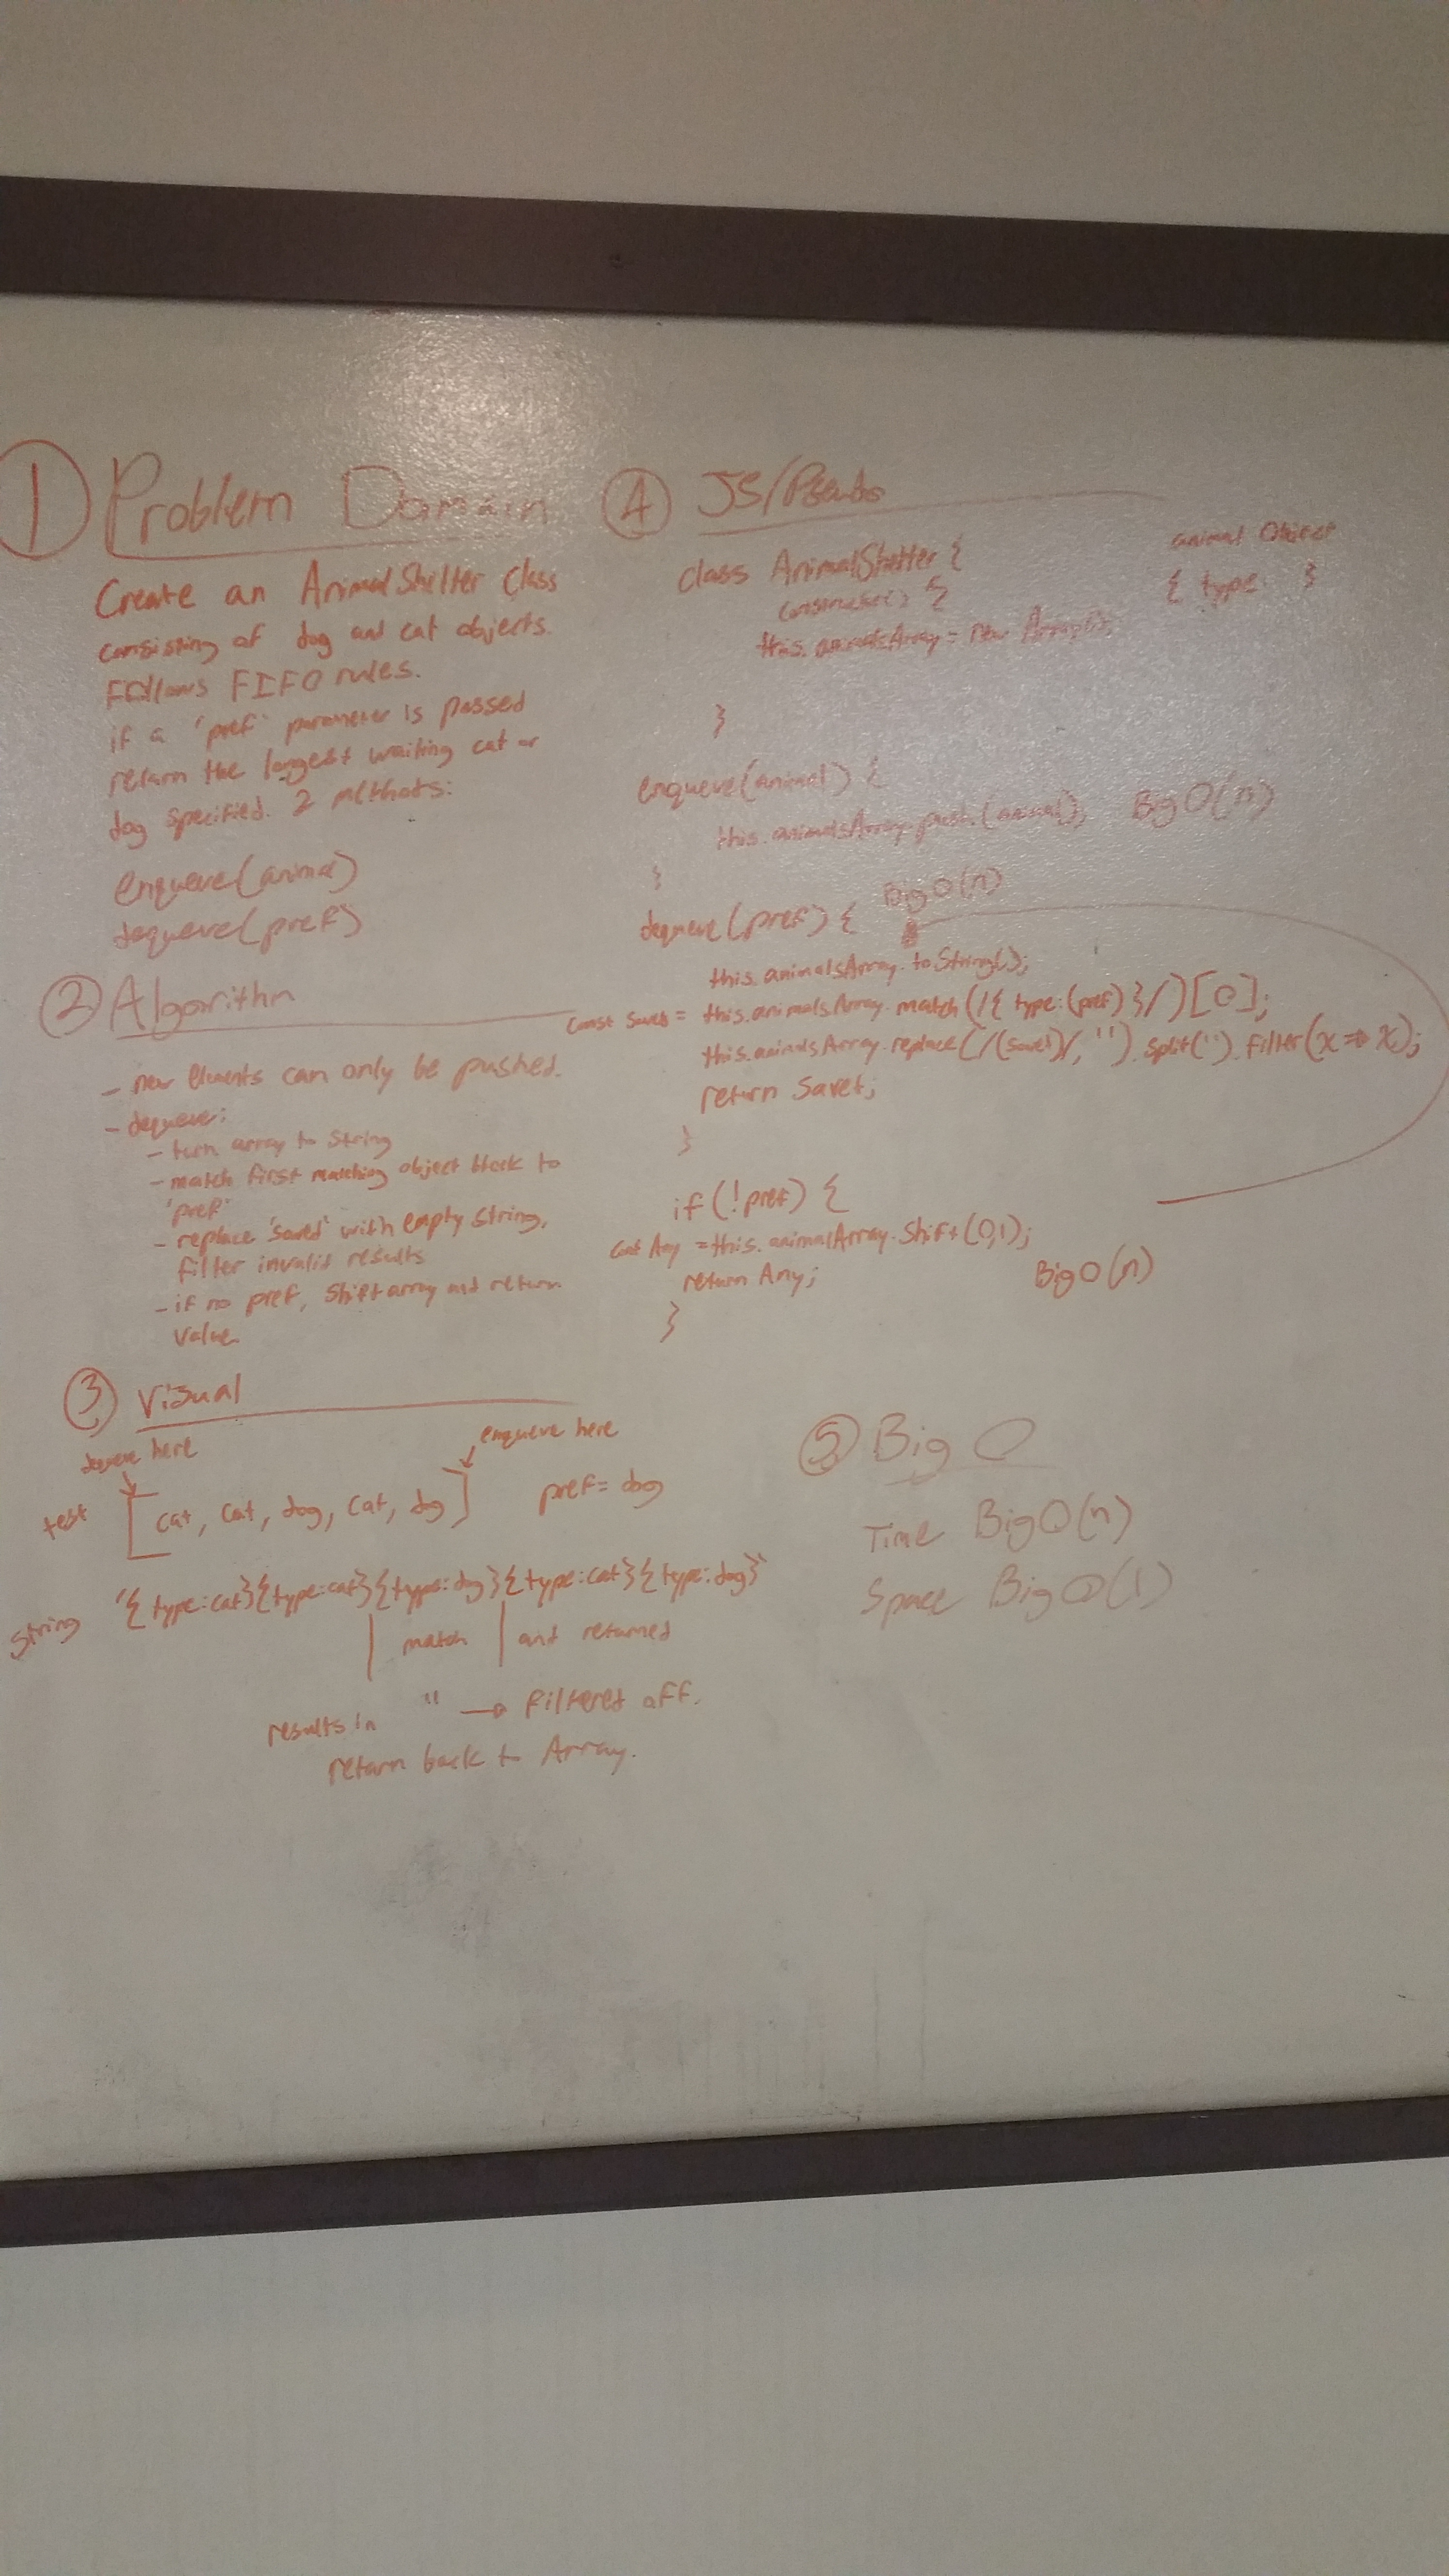 ① Problem Domain
Create an AnimalShelter Class
consisting of dog and cat objects.
Follows FIFO rules.
if a 'pref' parameter is passed
return the longest waiting cat or
dog specified. 2 methods:
enqueue(animal)
dequeue(pref)
② Algorithm
- new elements can only be pushed.
- dequeue:
- turn array to string
- match first matching object block to
'pref'
- replace 'saved' with empty string,
filter invalid results
- if no pref, shift array and return
value.
③ Visual
dequeue here
enqueue here
test [cat, cat, dog, cat, dog] pref = dog
string '{type:cat}{type:cat}{type:dog}{type:cat}{type:dog}'
match and returned
results in '' → filtered off.
return back to Array.
④ JS/Pseudo
class AnimalShelter {
constructor() {
this.animalsArray = new Array();
}
animal Object
{ type: }
enqueue(animal) {
this.animalsArray.push.(animal); Big O(n)
}
dequeue(pref) { Big O(n)
this.animalsArray.toString();
const saved = this.animalsArray.match(/{type:(pref)}/)[0];
this.animalsArray.replace(/(saved)/, '').split('').filter(x => x);
return saved;
}
if (!pref) {
const Any = this.animalArray.shift(0,1);
return Any;
}
Big O(n)
⑤ Big O
Time Big O(n)
Space Big O(1)